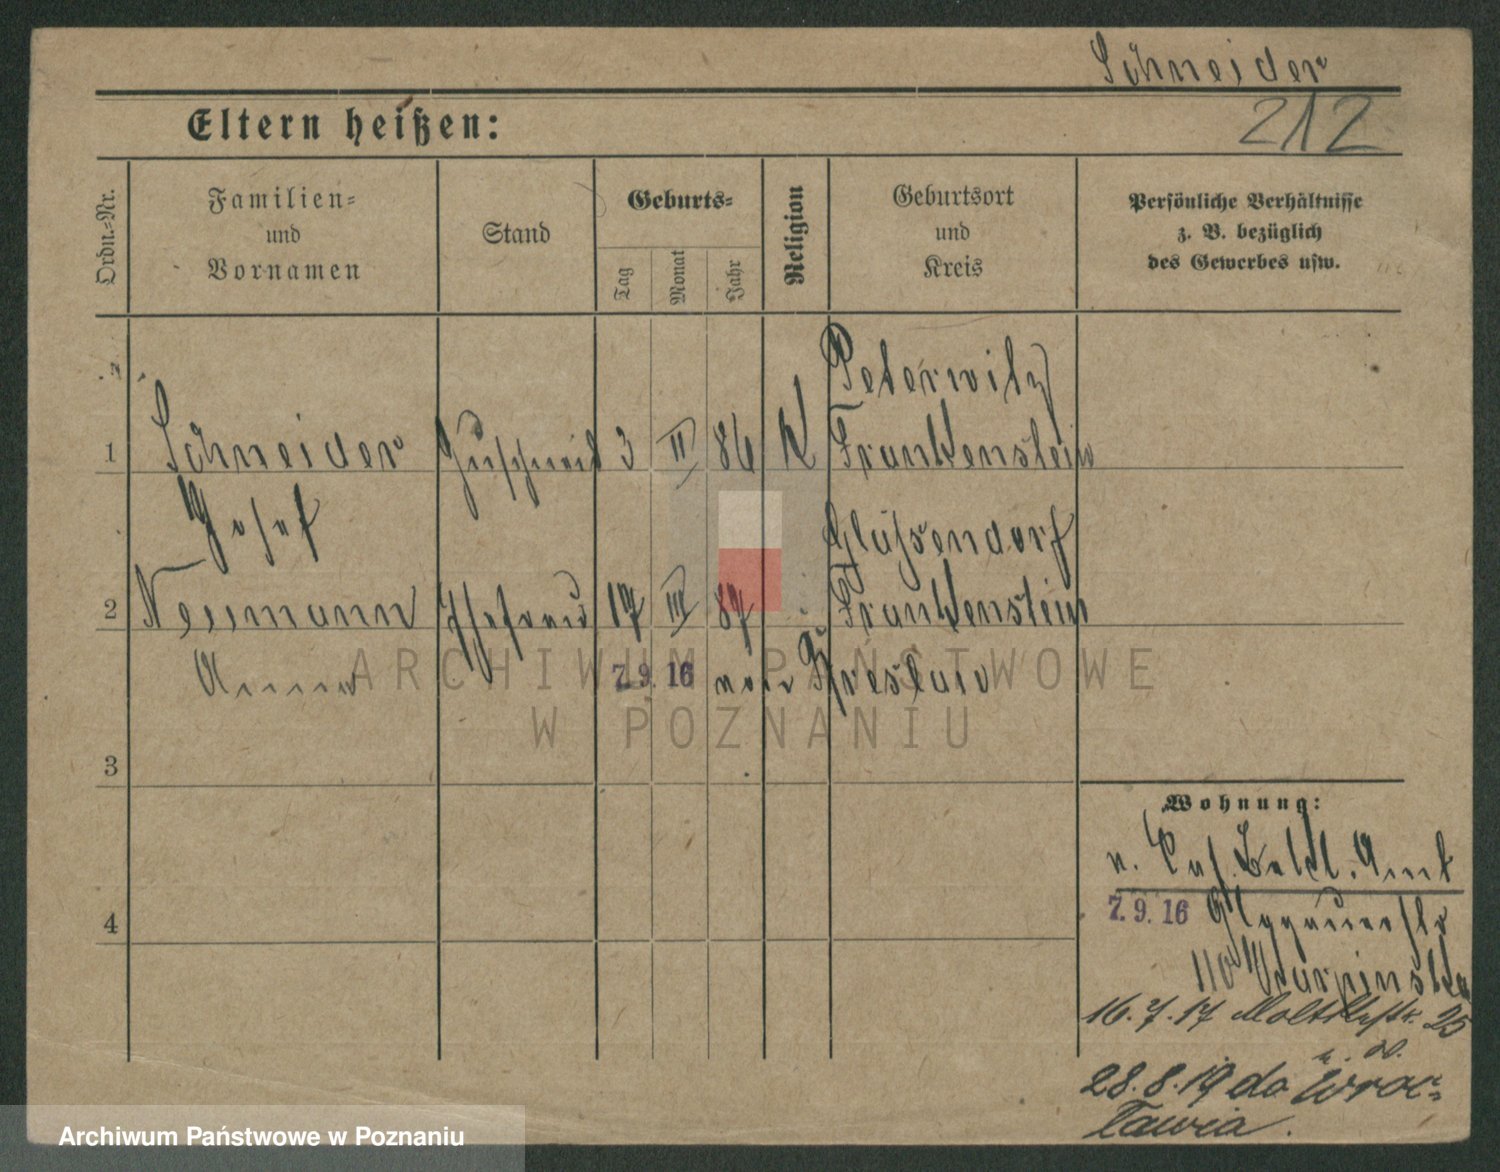 Schneider
212
Eltern heißen:
Ordn.-Nr.
Familien-
und
Vornamen
Stand
Geburts-
Tag
Monat
Jahr
Religion
Geburtsort
und
Kreis
Persönliche Verhältnisse
z. B. bezüglich
des Gewerbes usw.
Peterwitz
1 Schneider 3 II 86 K Frankenstein
Josef
Gläsendorf
2 Neumann Ehefrau 17 III 87 Frankenstein
Anna 7.9.16 von Breslau
3
Wohnung:
4
7.9.16 Glogauerstr
110
16.7.17 Moltkestr. 25
28.8.19 do Wroc-
ławia.
ARCHIWUM PAŃSTWOWE
W POZNANIU
Archiwum Państwowe w Poznaniu